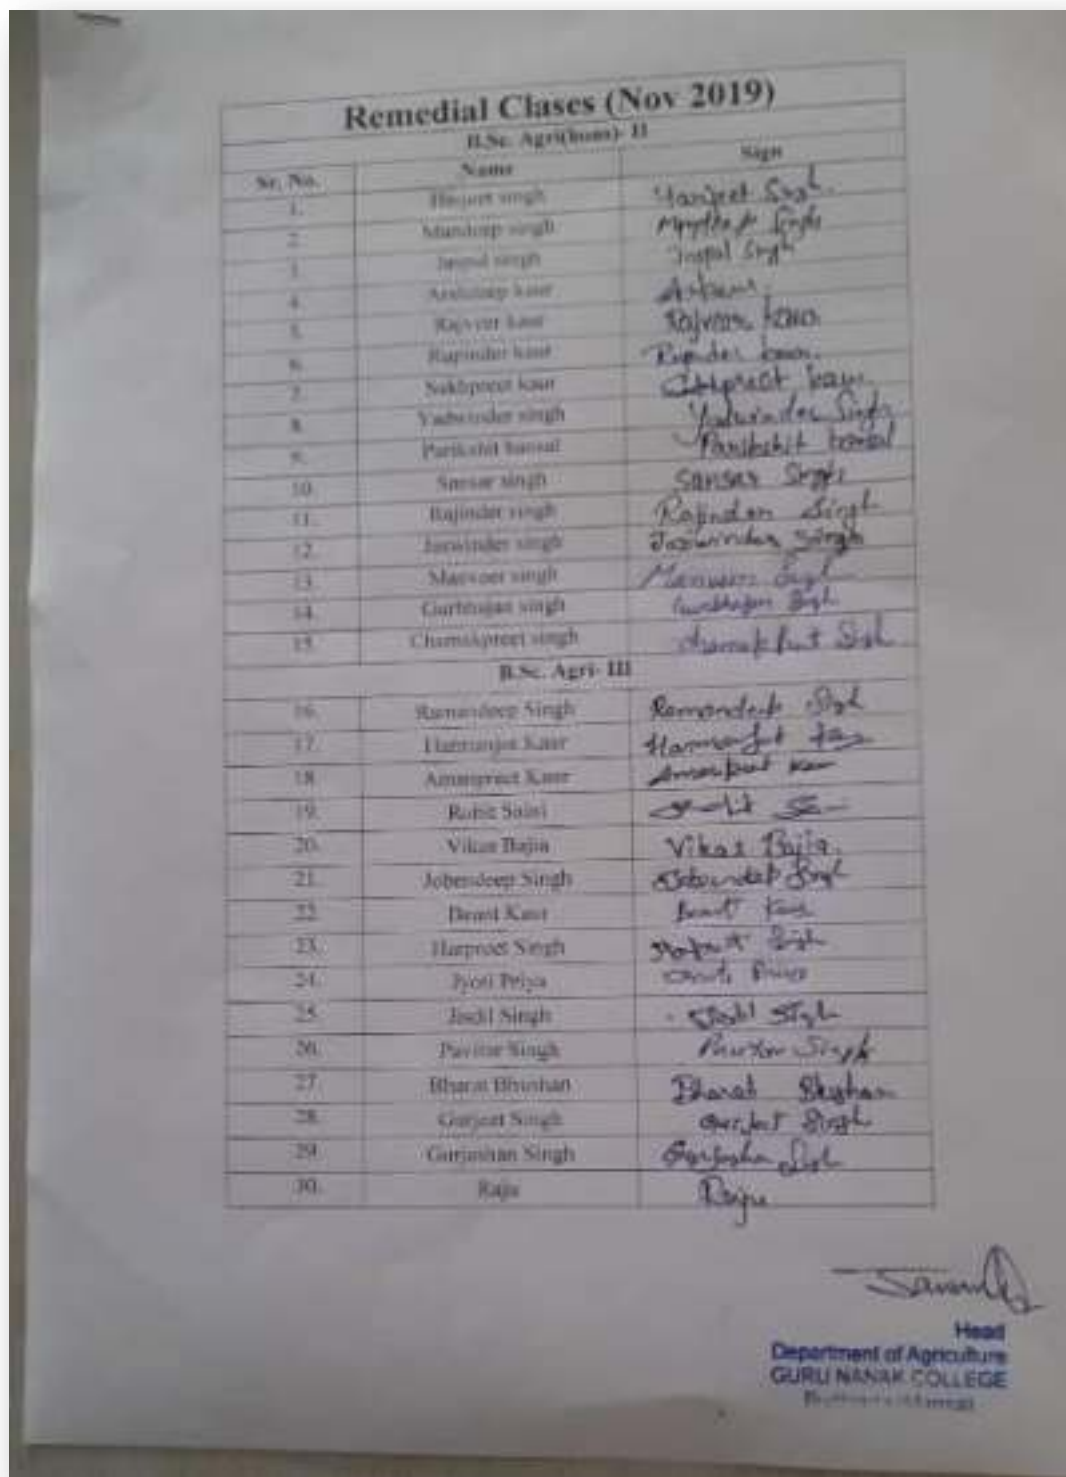 Remedial Clases (Nov 2019)
B.Sc. Agri(hons)- II
Sr. No. Name Sign
1. singh Singh
2. Mandeep singh Mandeep Singh
3. Jaspal singh Jaspal Singh
4. kaur
5. Rajveer kaur Rajveer kaur
6. Rupinder kaur Rupinder kaur
7. Sukhpreet kaur kaur
8. Yadwinder singh Yadwinder Singh
9. Parikshit bansal Parikshit bansal
10. Sansar singh Sansar Singh
11. Rajinder singh Rajinder Singh
12. Jaswinder singh Jaswinder Singh
13. Manveer singh Manveer Singh
14. Gurbhajan singh Gurbhajan Singh
15. Chamakpreet singh Chamakpreet Singh
B.Sc. Agri- III
16. Ramandeep Singh Ramandeep Singh
17. Harmanjot Kaur
18. Amanpreet Kaur Amanpreet Kaur
19. Rohit Saini
20. Vikas Bajia Vikas Bajia.
21. Jobendeep Singh Singh
22. Beant Kaur Beant Kaur
23. Harpreet Singh Harpreet Singh
24. Jyoti Priya
25. Singh Singh
26. Pavitar Singh Singh
27. Bharat Bhushan Bharat Bhushan
28. Gurjeet Singh Gurjeet Singh
29. Gurjashan Singh Singh
30. Raju Raju
Head
Department of Agriculture
GURU NANAK COLLEGE